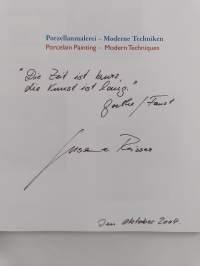 Porzellanmalerei – Moderne Techniken
Porcelain Painting – Modern Techniques
"Die Zeit ist kurz,
die Kunst ist lang."
Goethe / Faust
Im Oktober 2004